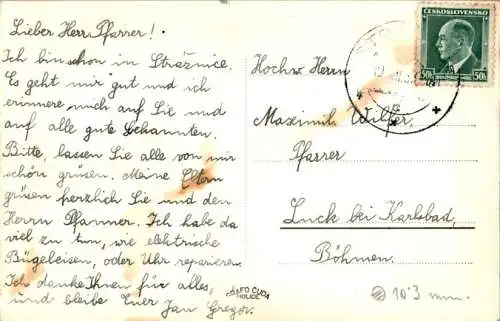 Lieber Herr Pfarrer!
Ich bin schon in Strážnice.
Es geht mir gut und ich
erinnere mich auf Sie und
auf alle gute Bekannten.
Bitte, lassen Sie alle von mir
schön grüsen. Meine Eltern
grüsen herzlich Sie und den
Herrn Pfanner. Ich habe da
viel zu tun, wie elektrische
Bügeleisen, oder Uhr reparieren.
Ich danke Ihnen für alles,
und bleibe Euer Jan Gregor.
ČESKOSLOVENSKO
50h 50h
Hochw. Herrn
Maximil. Wilfer,
Pfarrer
Luck bei Karlsbad,
Böhmen.
FO CUDA
HOLICE
10'3 mm.